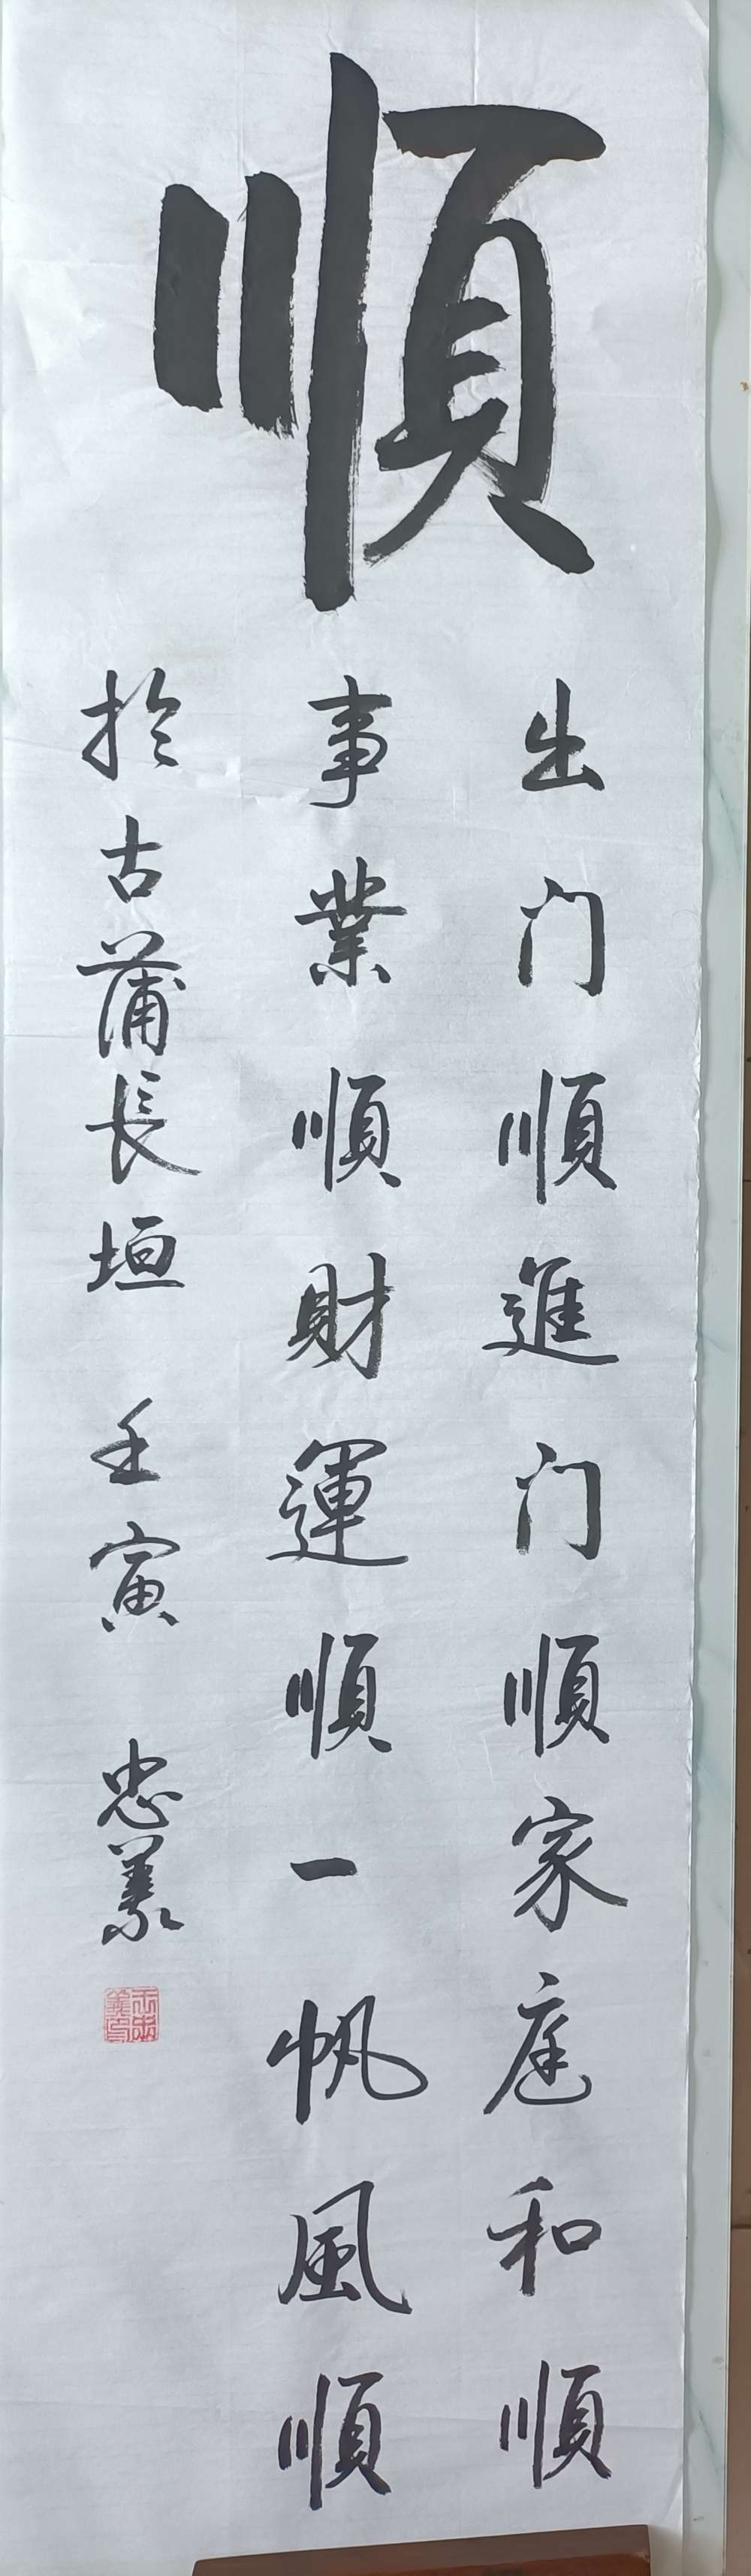 順
出门順進门順家庭和順
事業順財運順一帆風順
於古蒲長垣 壬寅 忠義